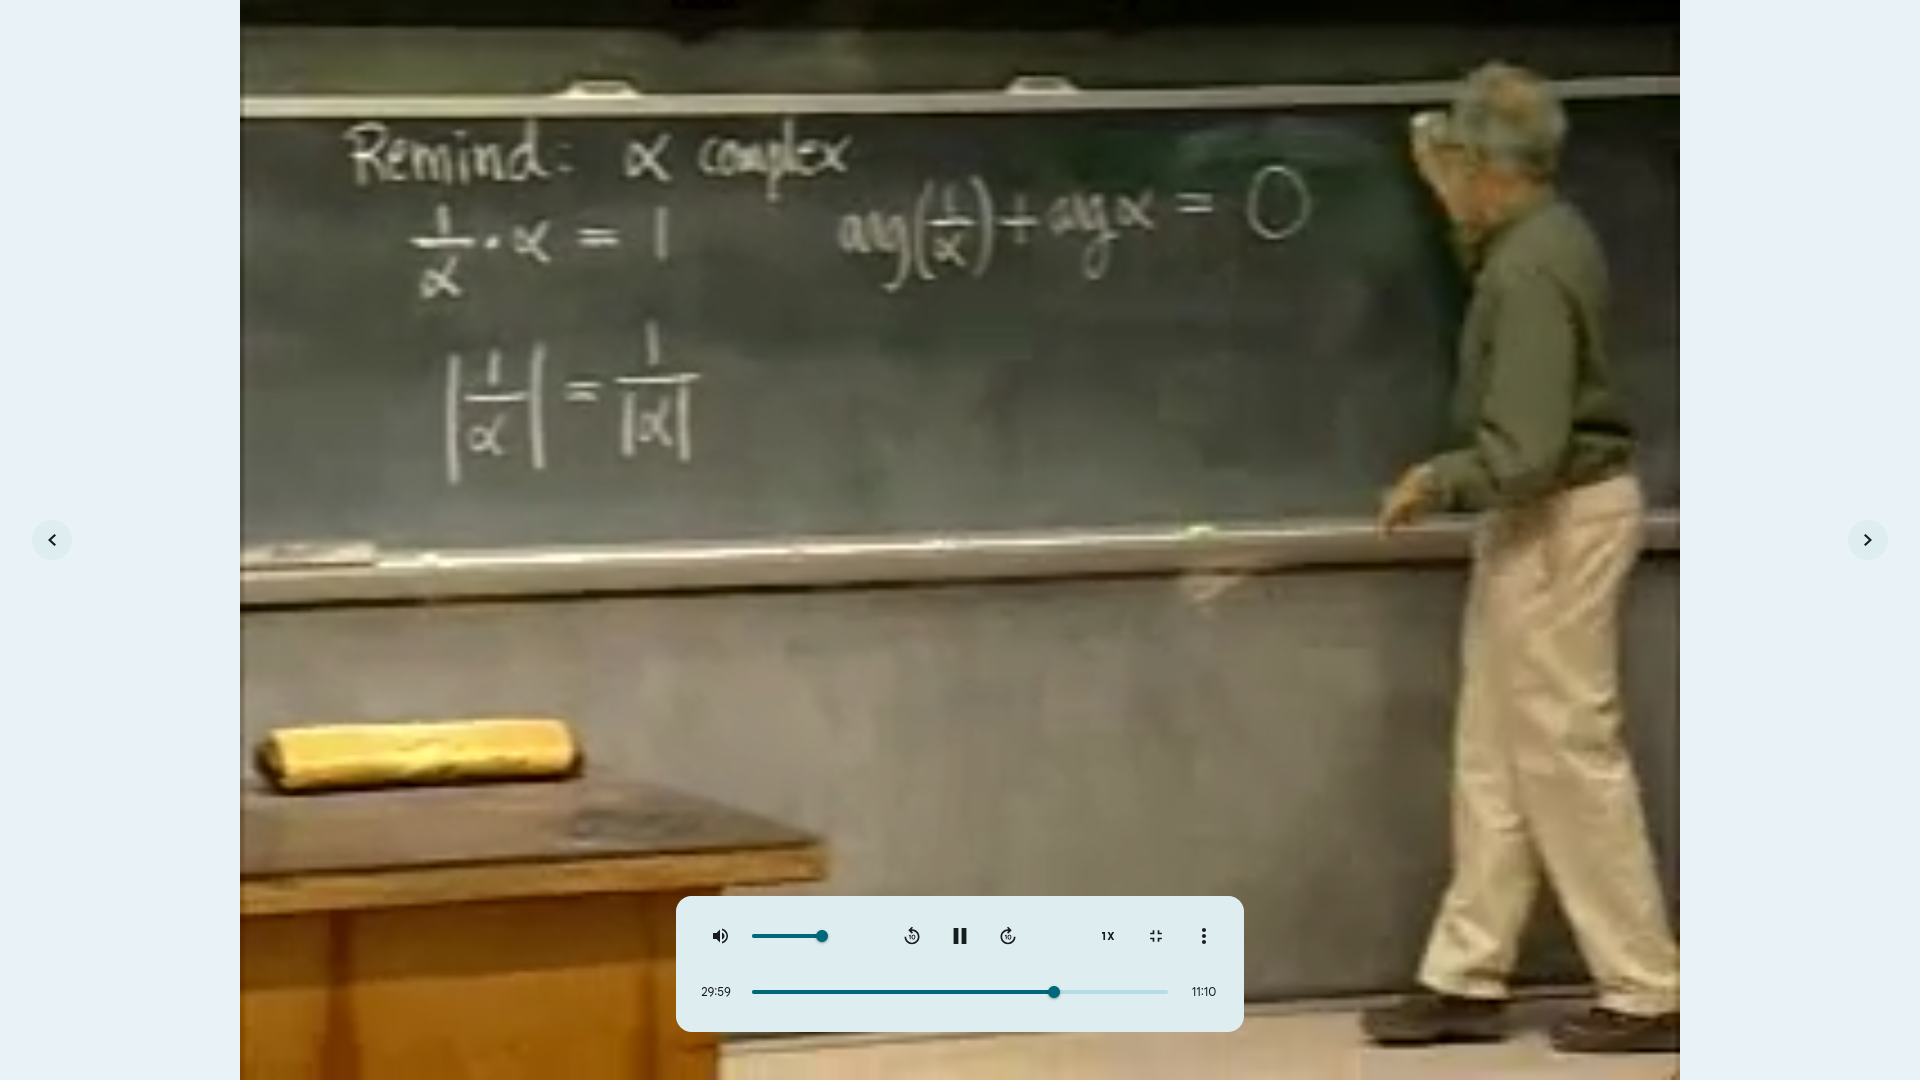 Remind: α complex
1/α · α = 1
arg(1/α) + arg α = 0
|1/α| = 1/|α|
10
10
1X
29:59
11:10